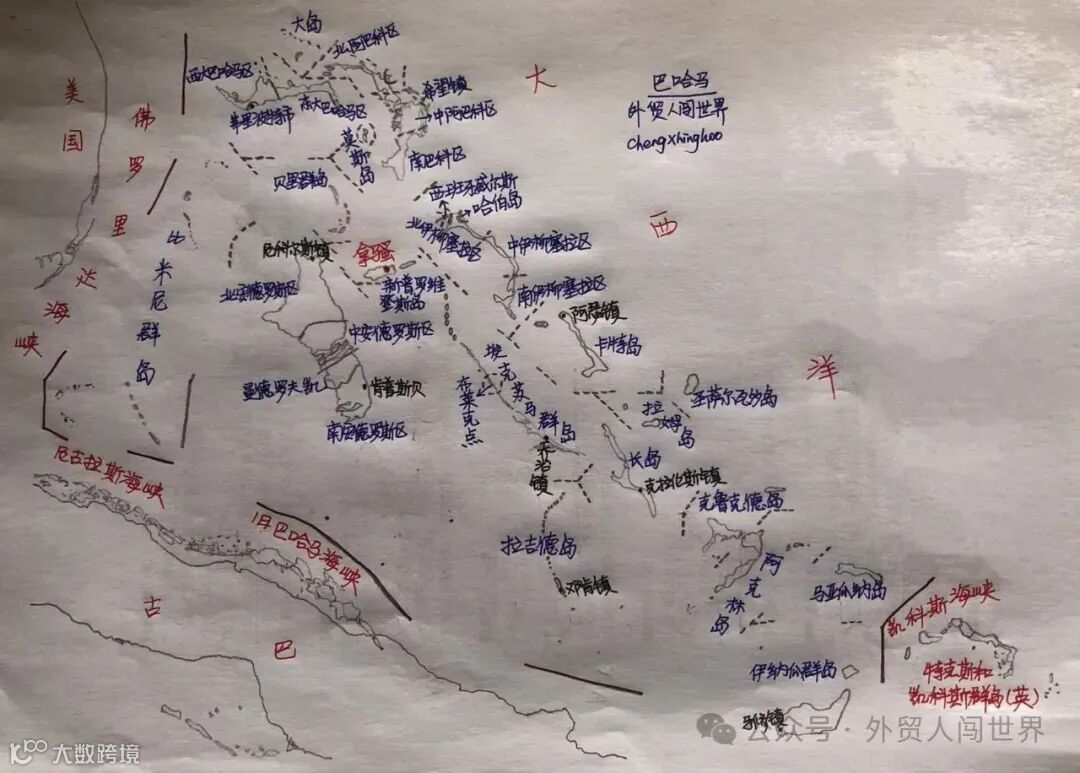 巴哈马
外贸人闯世界
chengxinghoo
美国
佛罗里达海峡
大西洋
大岛
北阿巴科区
西大巴哈马区
希望镇
东大巴哈马区
中阿巴科区
莫斯岛
南巴科区
贝里群岛
西班牙威尔斯
哈伯岛
比米尼群岛
北伊柳塞拉区
中伊柳塞拉区
尼科尔斯镇
拿骚
新普罗维
登斯岛
南伊柳塞拉区
北安德罗斯区
阿瑟镇
中安德罗斯区
卡特岛
埃克苏马群岛
布莱克点
曼德罗夫凯
肯普斯贝
南安德罗斯区
圣萨尔瓦沙岛
拉姆岛
长岛
乔治镇
克拉伦斯镇
厄古拉斯海峡
克鲁克德岛
旧巴哈马海峡
拉吉德岛
阿克林岛
邓肯镇
马亚瓜纳岛
凯科斯海峡
古巴
伊纳瓜群岛
特克斯和
凯科斯群岛(英)
公众号·外贸人闯世界
大数跨境